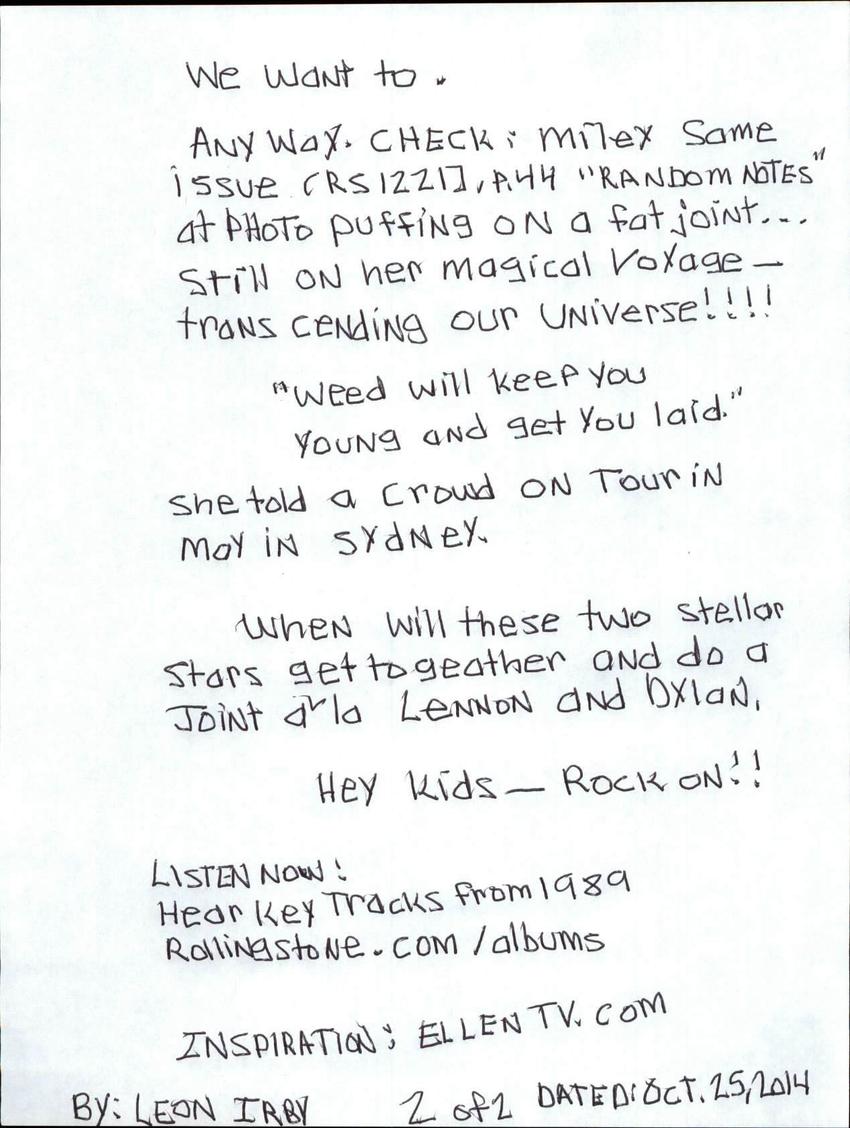 We want to.
Any way. CHECK: Miley Same
issue [RS1221], P.44 "RANDOM NOTES"
at PHOTO puffing on a fat joint...
Still on her magical Voyage —
transcending our Universe!!!!
"Weed will keep you
young and get you laid."
She told a crowd on Tour in
May in Sydney.
When will these two stellar
Stars get togeather and do a
Joint a'la Lennon and Dylan.
Hey kids — Rock on!!
LISTEN NOW!
Hear Key Tracks from 1989
Rollingstone.com/albums
INSPIRATION: ELLEN TV.COM
BY: LEON IRBY 2 of 2 DATED: Oct. 25, 2014